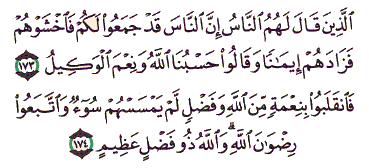 ٱلَّذِينَ قَالَ لَهُمُ ٱلنَّاسُ إِنَّ ٱلنَّاسَ قَدْ جَمَعُوا۟ لَكُمْ فَٱخْشَوْهُمْ
فَزَادَهُمْ إِيمَـٰنًا وَقَالُوا۟ حَسْبُنَا ٱللَّهُ وَنِعْمَ ٱلْوَكِيلُ ١٧٣
فَٱنقَلَبُوا۟ بِنِعْمَةٍ مِّنَ ٱللَّهِ وَفَضْلٍ لَّمْ يَمْسَسْهُمْ سُوٓءٌ وَٱتَّبَعُوا۟
رِضْوَٰنَ ٱللَّهِ ۗ وَٱللَّهُ ذُو فَضْلٍ عَظِيمٍ ١٧٤